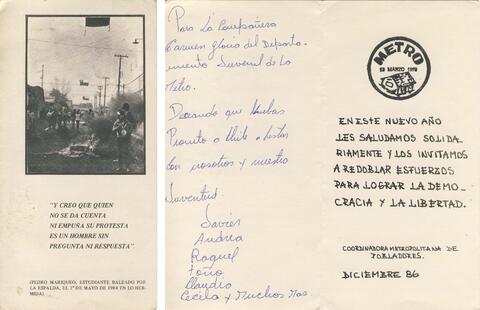 "Y CREO QUE QUIEN
NO SE DA CUENTA
NI EMPUÑA SU PROTESTA
ES UN HOMBRE SIN
PREGUNTA NI RESPUESTA".
(PEDRO MARIQUEO, ESTUDIANTE BALEADO POR
LA ESPALDA, EL 1º DE MAYO DE 1984 EN LO HER-
MIDA)
Para La Compañera
Carmen gloria del Departa-
mento Juvenil de La
Metro.
Deseando que Vuelvas
Pronto a Chile a estar
Con nosotros y nuestra
Juventud.
Javier
Andrea
Raquel
Toño
Claudio
Cecila y Muchos Mas.
METRO
MARZO 1979
EN ESTE NUEVO AÑO
LES SALUDAMOS SOLIDA
RIAMENTE Y LOS INVITAMOS
A REDOBLAR ESFUERZOS
PARA LOGRAR LA DEMO-
CRACIA Y LA LIBERTAD.
COORDINADORA METROPOLITANA DE
POBLADORES.
DICIEMBRE 86